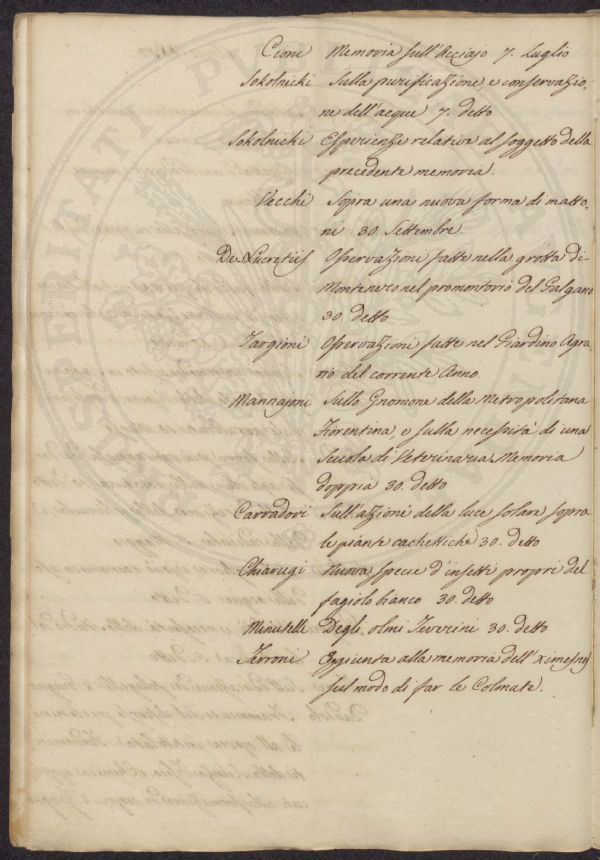 Cioni Memoria sull'Acciajo 7. Luglio
Sokolnicki Sulla purificazione, e conservazio,
ne dell'acque 7. detto
Sokolnicki Esperienze relative al soggetto della
precedente memoria.
Vecchi Sopra una nuova forma di matto,
ni 30. Settembre.
De Lucretiis Osservazioni fatte nella grotta di
Montenero nel promontorio del Galgano
30. detto
Targioni Osservazioni fatte nel Giardino Agra,
rio del corrente Anno.
Mannajoni Sullo Gnomone della Metropolitana
Fiorentina, e sulla necessità di una
Scuola di Veterinaria Memoria
doppia 30. detto
Carradori Sull'azione della luce solare sopra
le piante cachettiche 30. detto
Chiarugi Nuova specie d'insetti propri del
fagiolo bianco 30. detto
Minutelli Degli olmi Feverini 30. detto
Ferroni Aggiunta alla memoria dell'Ximenes
sul modo di far le Colmate.